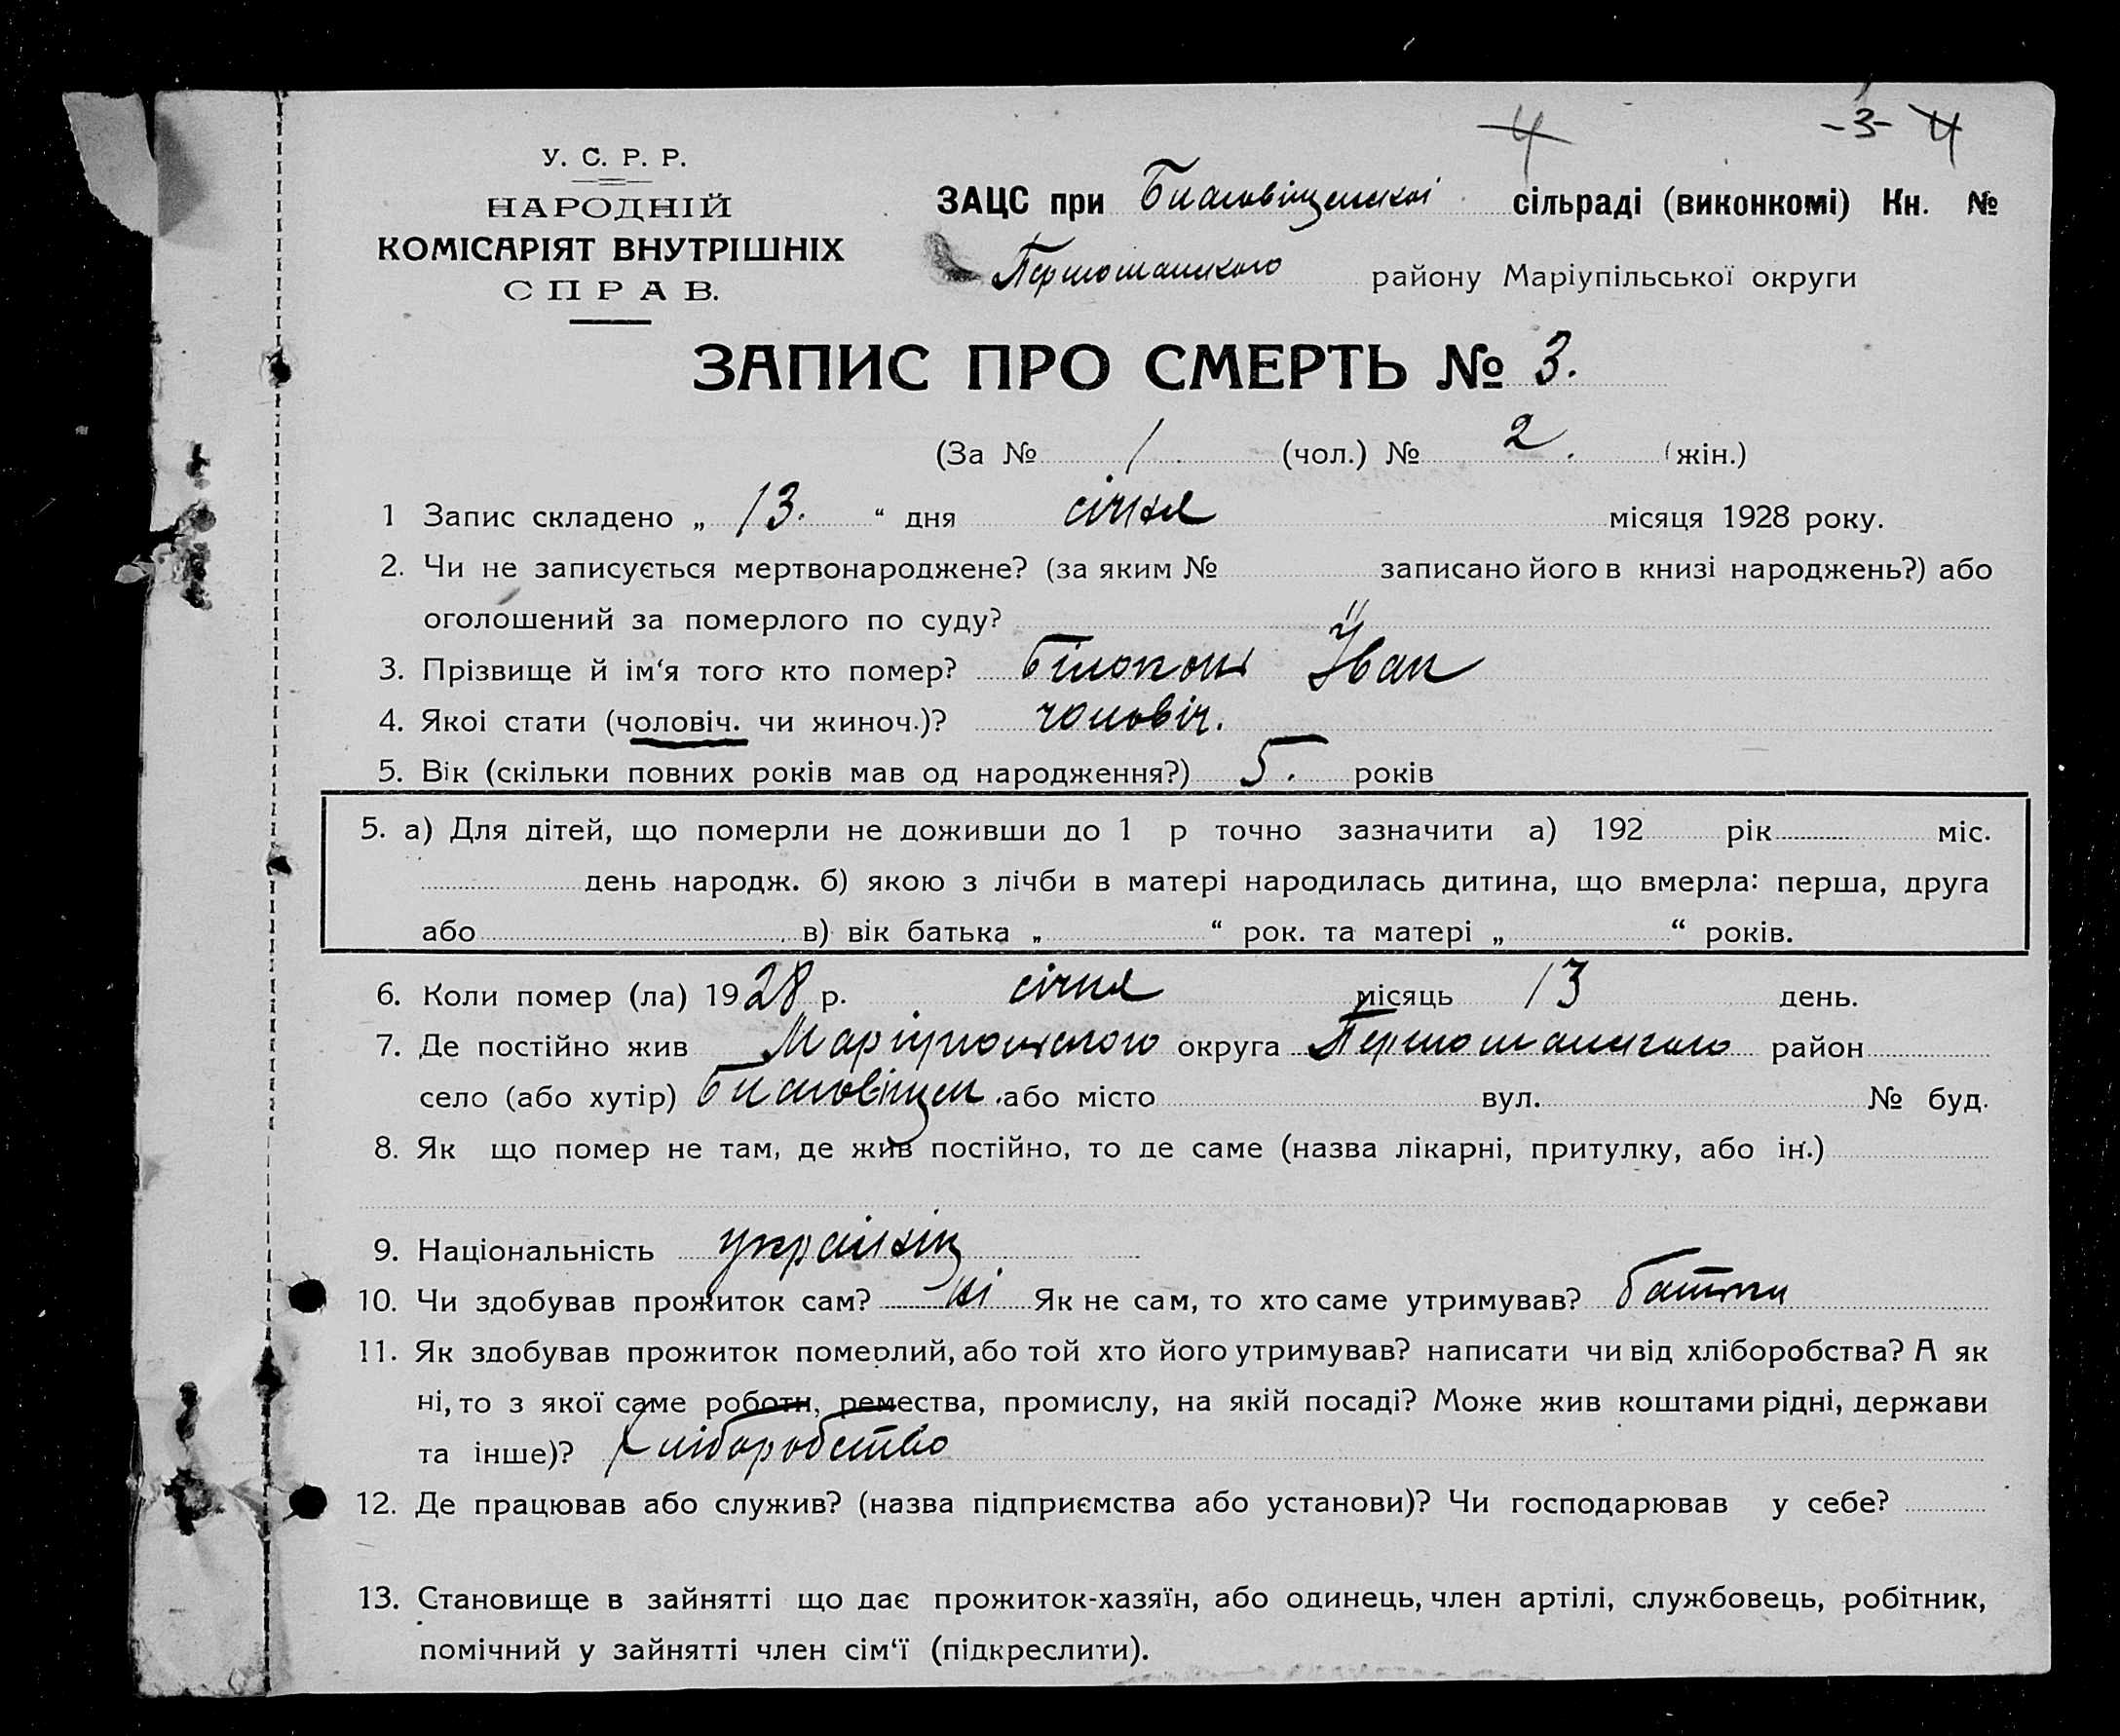 4 -3- 4
У. С. Р. Р.
НАРОДНІЙ
КОМІСАРІЯТ ВНУТРІШНІХ
СПРАВ.
ЗАЦС при Благовіщенскої сільраді (виконкомі) Кн. №
Першотанского району Маріупільської округи
ЗАПИС ПРО СМЕРТЬ № 3.
(За № 1. (чол.) № 2. (жін.)
1 Запис складено „ 13. “ дня січня місяця 1928 року.
2. Чи не записується мертвонароджене? (за яким № записано його в книзі народжень?) або
оголошений за померлого по суду?
3. Прізвище й ім‘я того кто помер? Білоконь Іван
4. Якоі стати (чоловіч. чи жиноч.)? чоловіч.
5. Вік (скільки повних років мав од народження?) 5. років
5. а) Для дітей, що померли не доживши до 1 р точно зазначити а) 192 рік міс.
день народж. б) якою з лічби в матері народилась дитина, що вмерла: перша, друга
або в) вік батька „ “ рок. та матері „ “ років.
6. Коли помер (ла) 1928 р. січня місяць 13 день.
7. Де постійно жив Маріупольского округа Першотанского район
село (або хутір) Благовіщен. або місто вул. № буд.
8. Як що помер не там, де жив постійно, то де саме (назва лікарні, притулку, або ін.)
9. Національність українец
10. Чи здобував прожиток сам? ні Як не сам, то хто саме утримував? батьки
11. Як здобував прожиток померлий, або той хто його утримував? написати чи від хліборобства? А як
ні, то з якої саме роботи, ремества, промислу, на якій посаді? Може жив коштами рідні, держави
та інше)? Хліборобство
12. Де працював або служив? (назва підприємства або установи)? Чи господарював у себе?
13. Становище в зайнятті що дає прожиток-хазяїн, або одинець, член артілі, службовець, робітник,
помічний у зайнятті член сім‘ї (підкреслити).